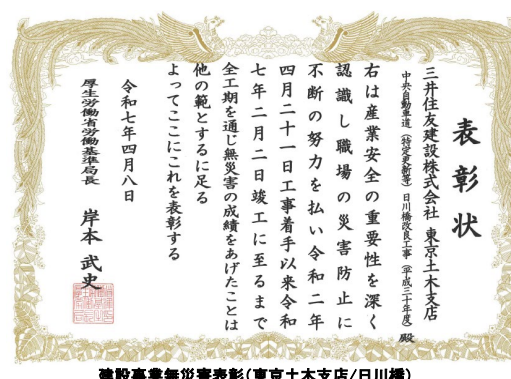 表彰状
三井住友建設株式会社 東京土木支店
中央自動車道（特定更新等）日川橋改良工事（平成三十年度）殿
右は産業安全の重要性を深く
認識し職場の災害防止に
不断の努力を払い令和二年
四月二十一日工事着手以来令和
七年二月二日竣工に至るまで
全工期を通じ無災害の成績をあげたことは
他の範とするに足る
よってここにこれを表彰する
令和七年四月八日
厚生労働省労働基準局長 岸本 武史
建設事業無災害表彰（東京土木支店/日川橋）